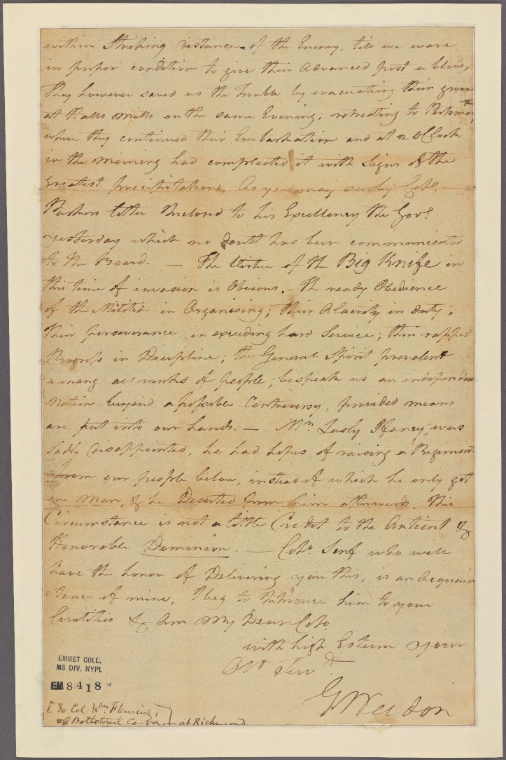 within Striking distance of the Enemy, till we were
in proper condition to give their Advanced post a blow,
They however saved us the Trouble by evacuating their ground
at Halls Mills on the same Evening, retreating to Portsmo
where they continued their Embarkation and at 2 oClock
in the morning had compleated it with Signs of the
greatest precipitation, as you may see by Colo.
Parkers letter Inclosed to his Excellency the Govr.
yesterday which no doubt has been communicated
to the Board. — The Virtue of the Big Knife in
this time of invasion is Obvious. The ready Obedience
of the Militia in Organising; their Alacrity in duty;
their perseverance in exceeding hard Service; their rappid
Progress in Discipline; the General Spirit prevalent
among all ranks of people; bespeak us an independent
Nation beyond a possible Controversy, provided means
are put into our hands. — Mr. Hancy was
sadly disappointed, he had hopes of raising a Regiment
from our people below, instead of which he only got
one man, & he Deserted from him afterwards. This
Circumstance is not a little Credit to the Antient &
Honorable Dominion. — Colo. Senf who will
have the honor of Delivering you this, is an Acquain
tance of mine, I beg to Introduce him to your
Civilities & Am My Dear Colo
with high Esteem your
Obt Servt
G Weedon
EMMET COLL.
MS DIV. NYPL
EM 8418
To Col. Wm Fleming
at Richmond